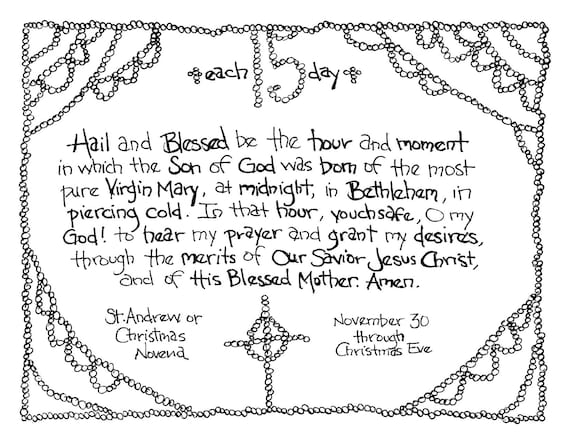 each 15 day
Hail and Blessed be the hour and moment
in which the Son of God was born of the most
pure Virgin Mary, at midnight, in Bethlehem, in
piercing cold. In that hour, vouchsafe, O my
God! to hear my prayer and grant my desires,
through the merits of Our Savior Jesus Christ,
and of His Blessed Mother. Amen.
St. Andrew or
Christmas
Novena
November 30
through
Christmas Eve